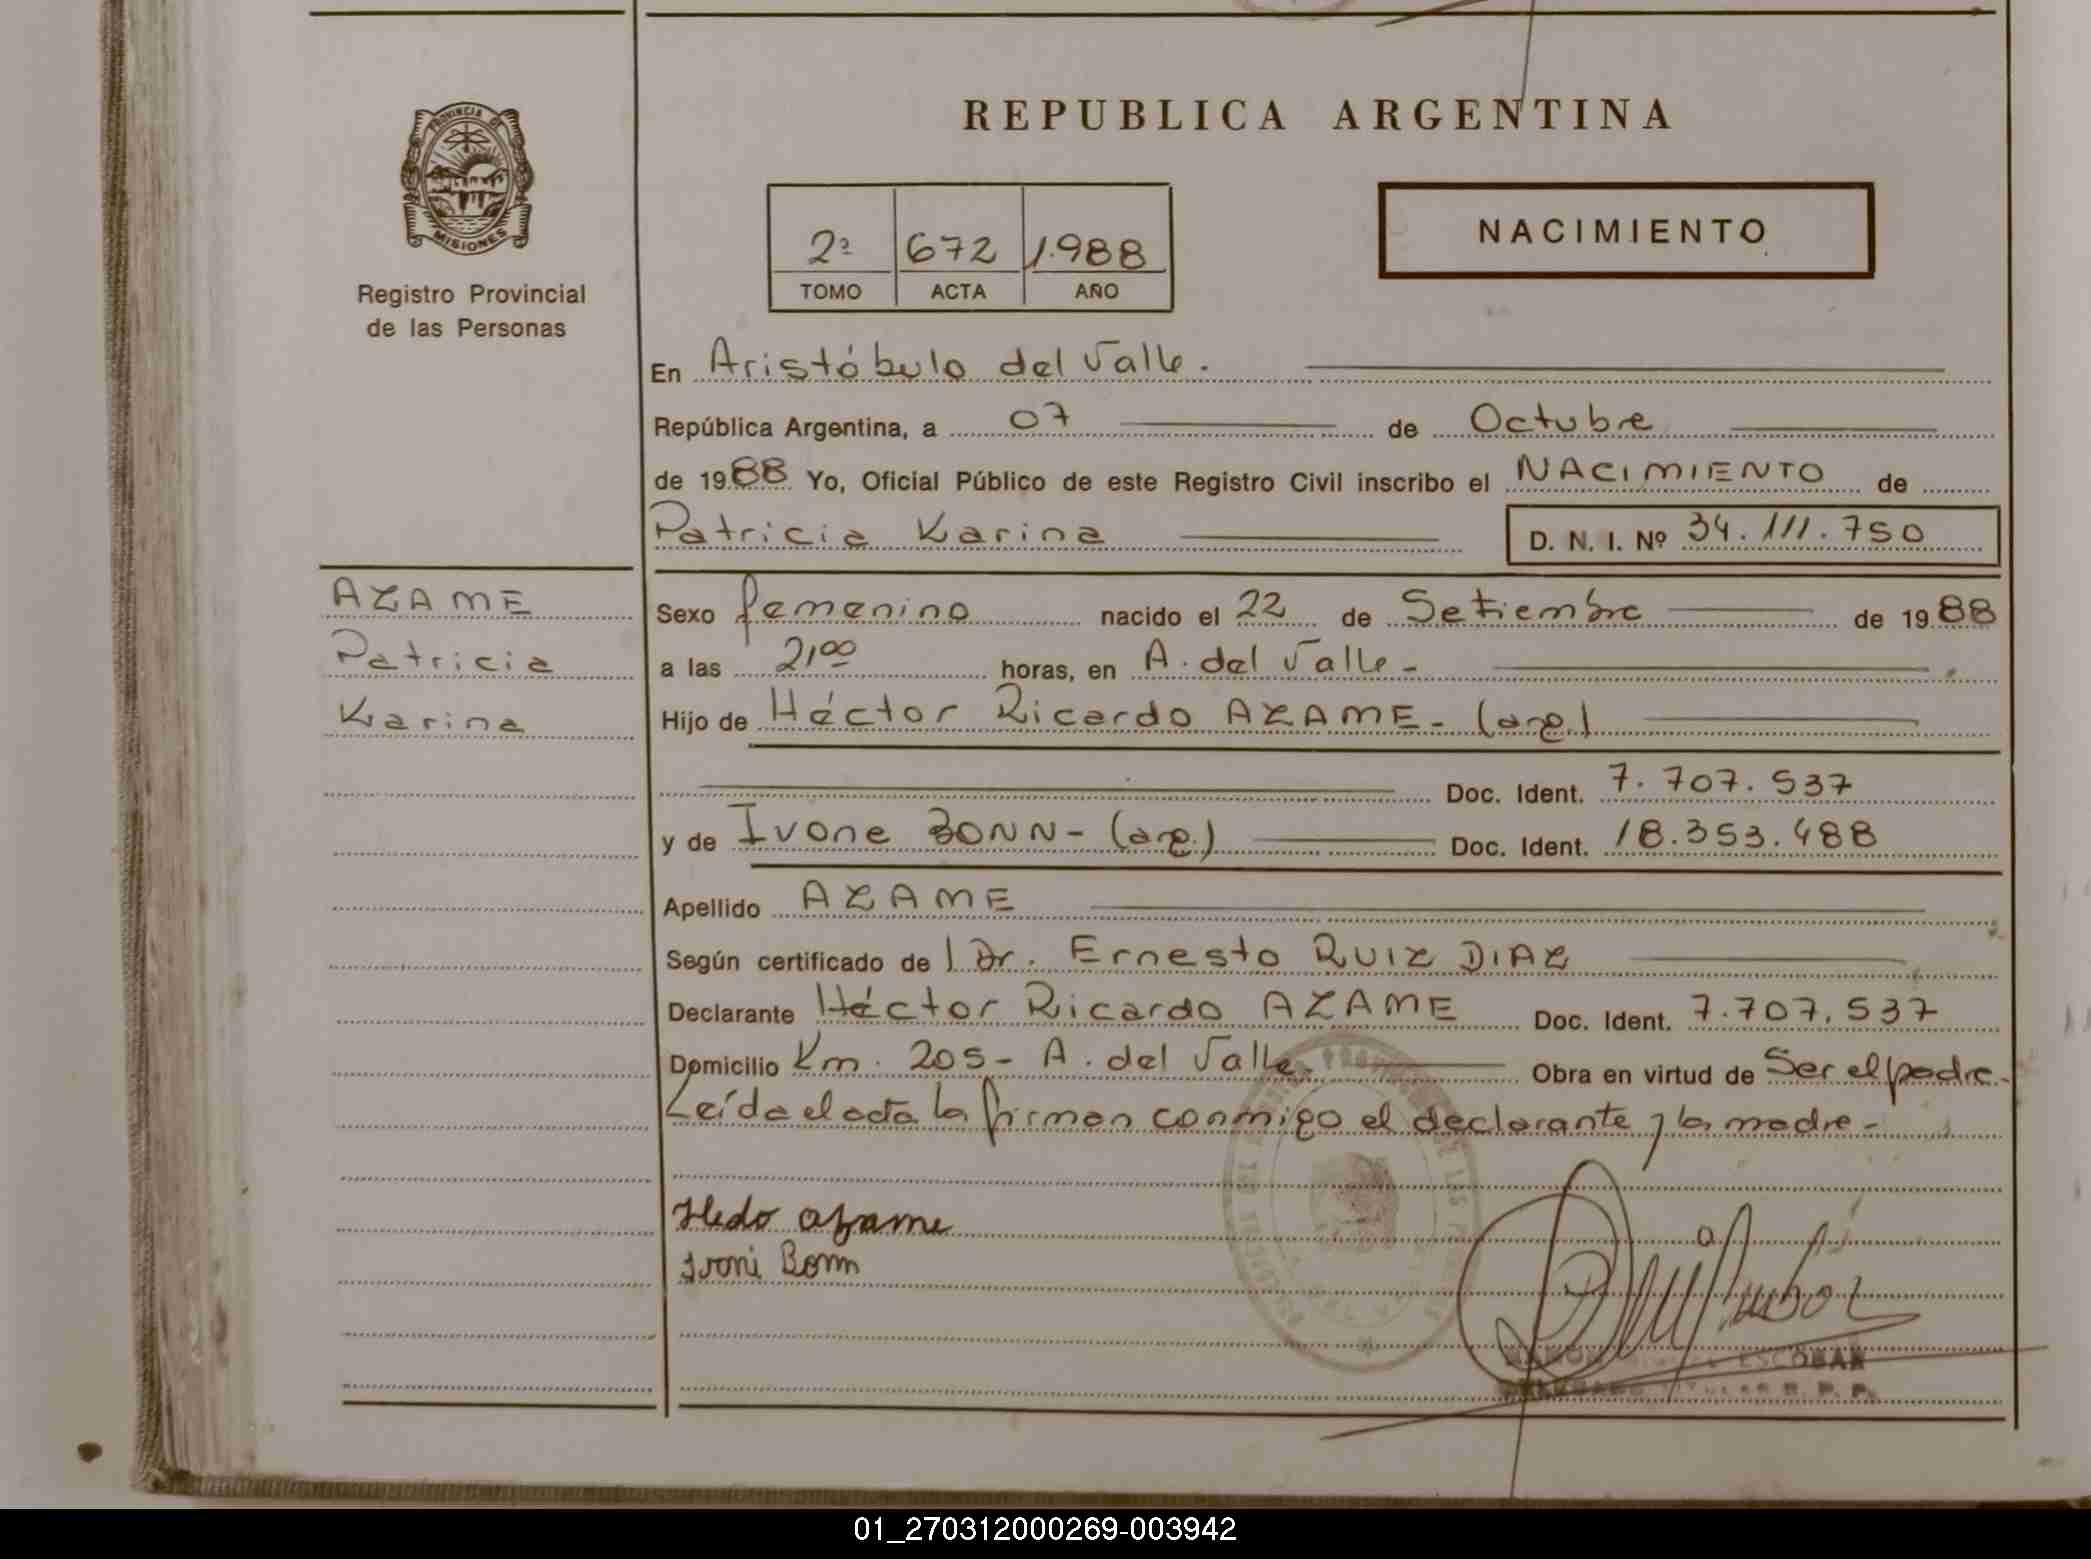 PROVINCIA DE
MISIONES
Registro Provincial
de las Personas
REPUBLICA ARGENTINA
2ª 672 1.988
TOMO ACTA AÑO
NACIMIENTO
En Aristóbulo del Valle.
República Argentina, a 07 de Octubre
de 1988 Yo, Oficial Público de este Registro Civil inscribo el NACIMIENTO de
Patricia Karina D. N. I. Nº 34.111.750
AZAME
Patricia
Karina
Sexo femenino nacido el 22 de Setiembre de 1988
a las 21,00 horas, en A. del Valle-
Hijo de Héctor Ricardo AZAME- (arg.)
Doc. Ident. 7.707.537
y de Ivone BONN- (arg.) Doc. Ident. 18.353.488
Apellido AZAME
Según certificado de l Dr. Ernesto RUIZ DIAZ
Declarante Héctor Ricardo AZAME Doc. Ident. 7.707.537
Domicilio Km. 205- A. del Valle. Obra en virtud de Ser el padre.
Leída el acta la firman conmigo el declarante y la madre-
azame
Ivoni Bonn
ESCOBAR
R. P. P.
01_270312000269-003942